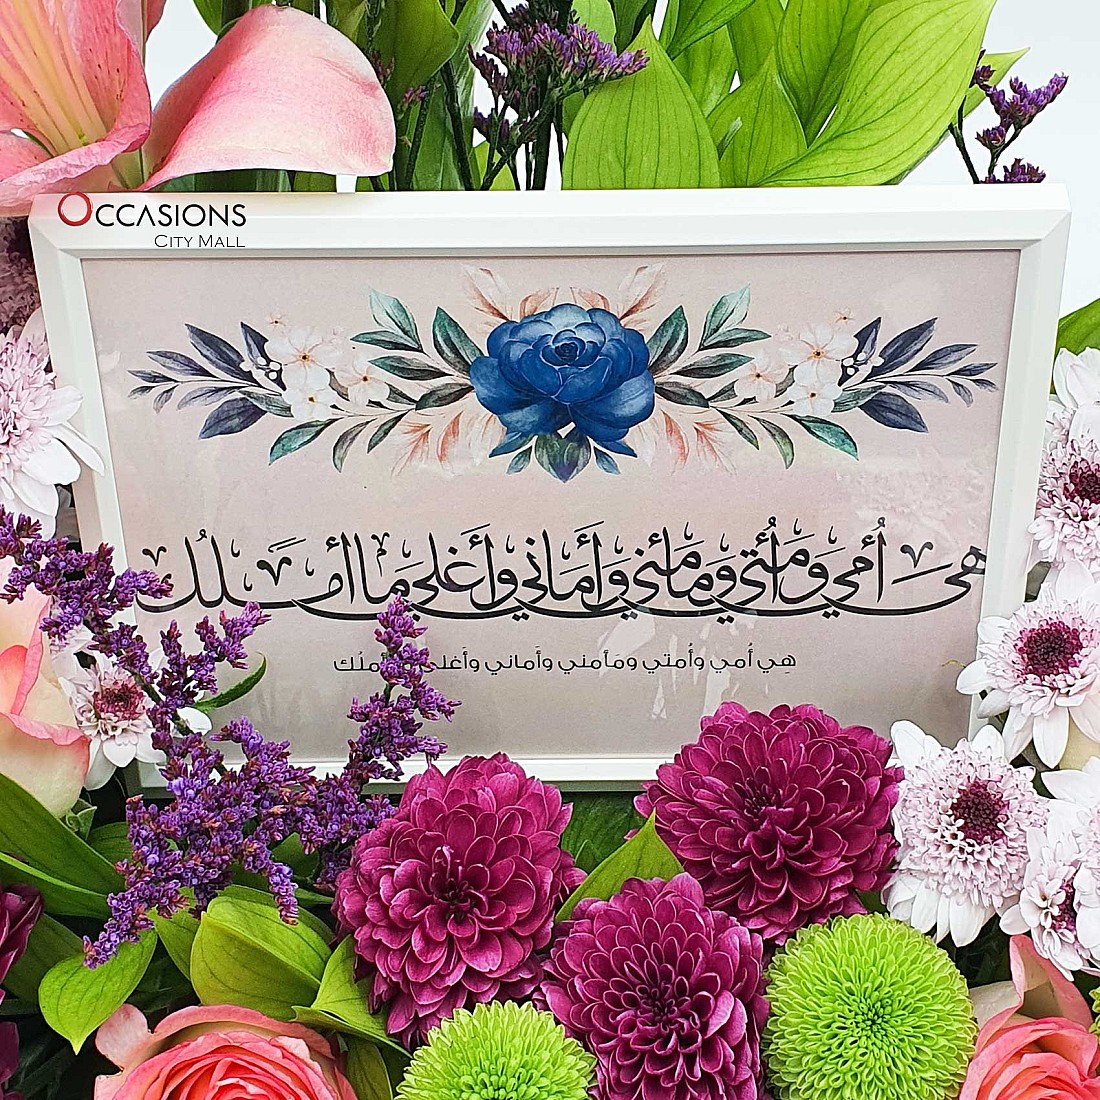 OCCASIONS
CITY MALL
هي أُمي وَمَأُمَّتي وَمأمَني وَأَمَاني وَأَغلى مَا أَملُك
هِي أُمي وأُمتي ومَأمني وأَماني وأغلى أملُك